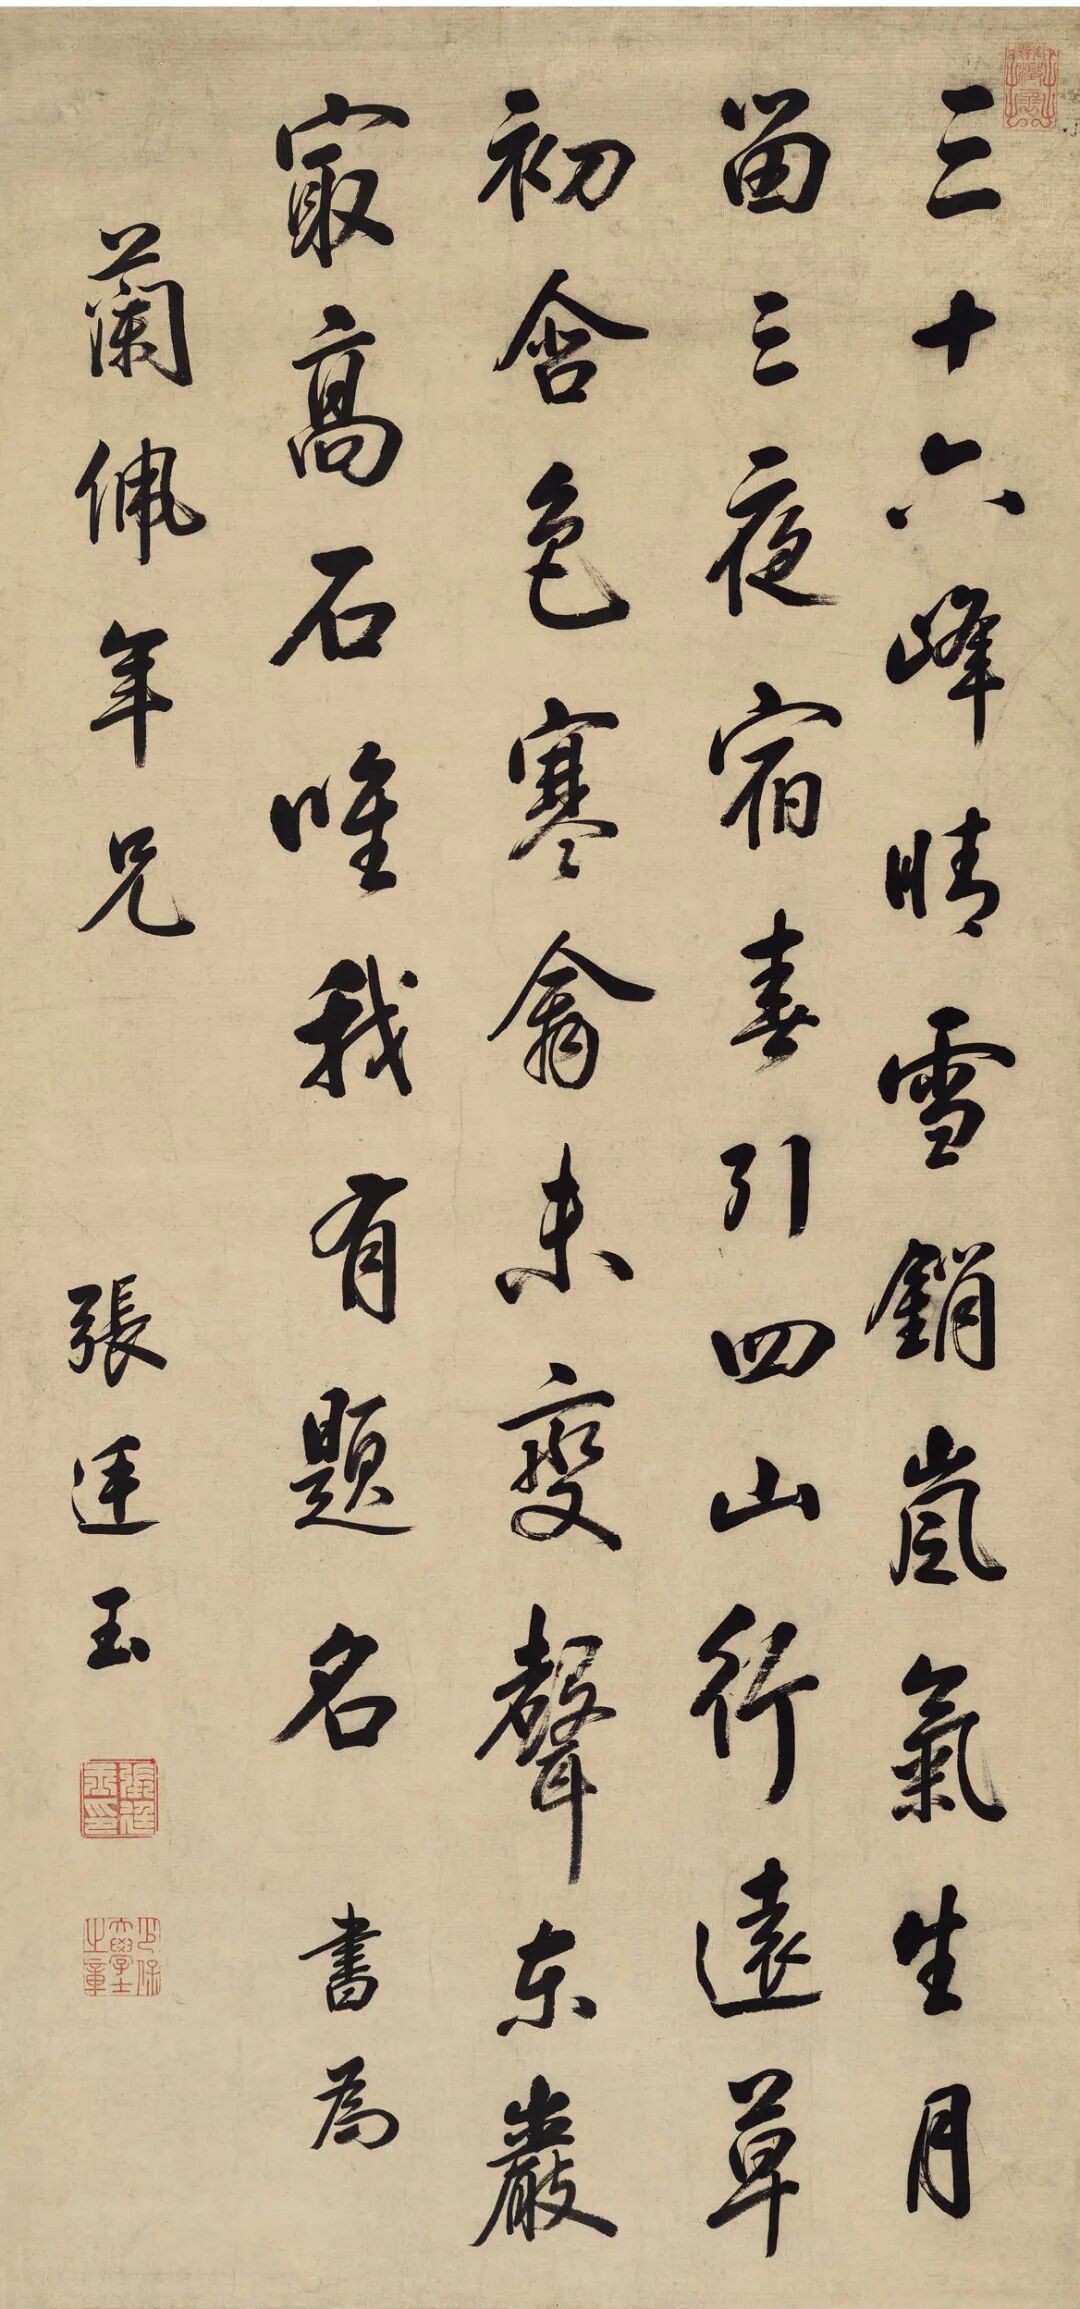 三十六峰晴雪銷嵐氣生月
留三夜宿春引四山行遠草
初含色寒禽未變聲東巖
最高石唯我有題名 書為
蘭佩年兄 張廷玉
張廷玉印